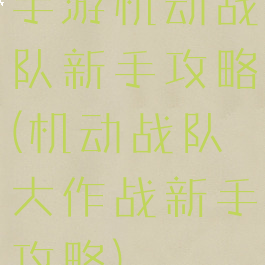 手游机动战
队新手攻略
(机动战队
大作战新手
攻略)